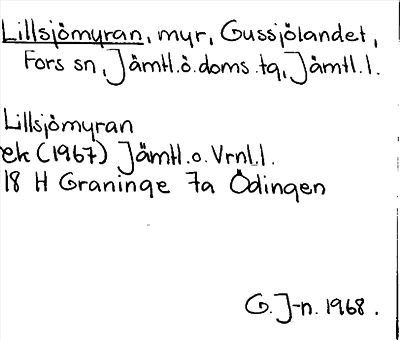 Lillsjömyran, myr, Gussjölandet,
Fors sn, Jämtl.ö.doms.tg, Jämtl.l.
Lillsjömyran
ek (1967) Jämtl.o.Vrnl.l.
18 H Graninge 7a Ödingen
G. J-n. 1968.